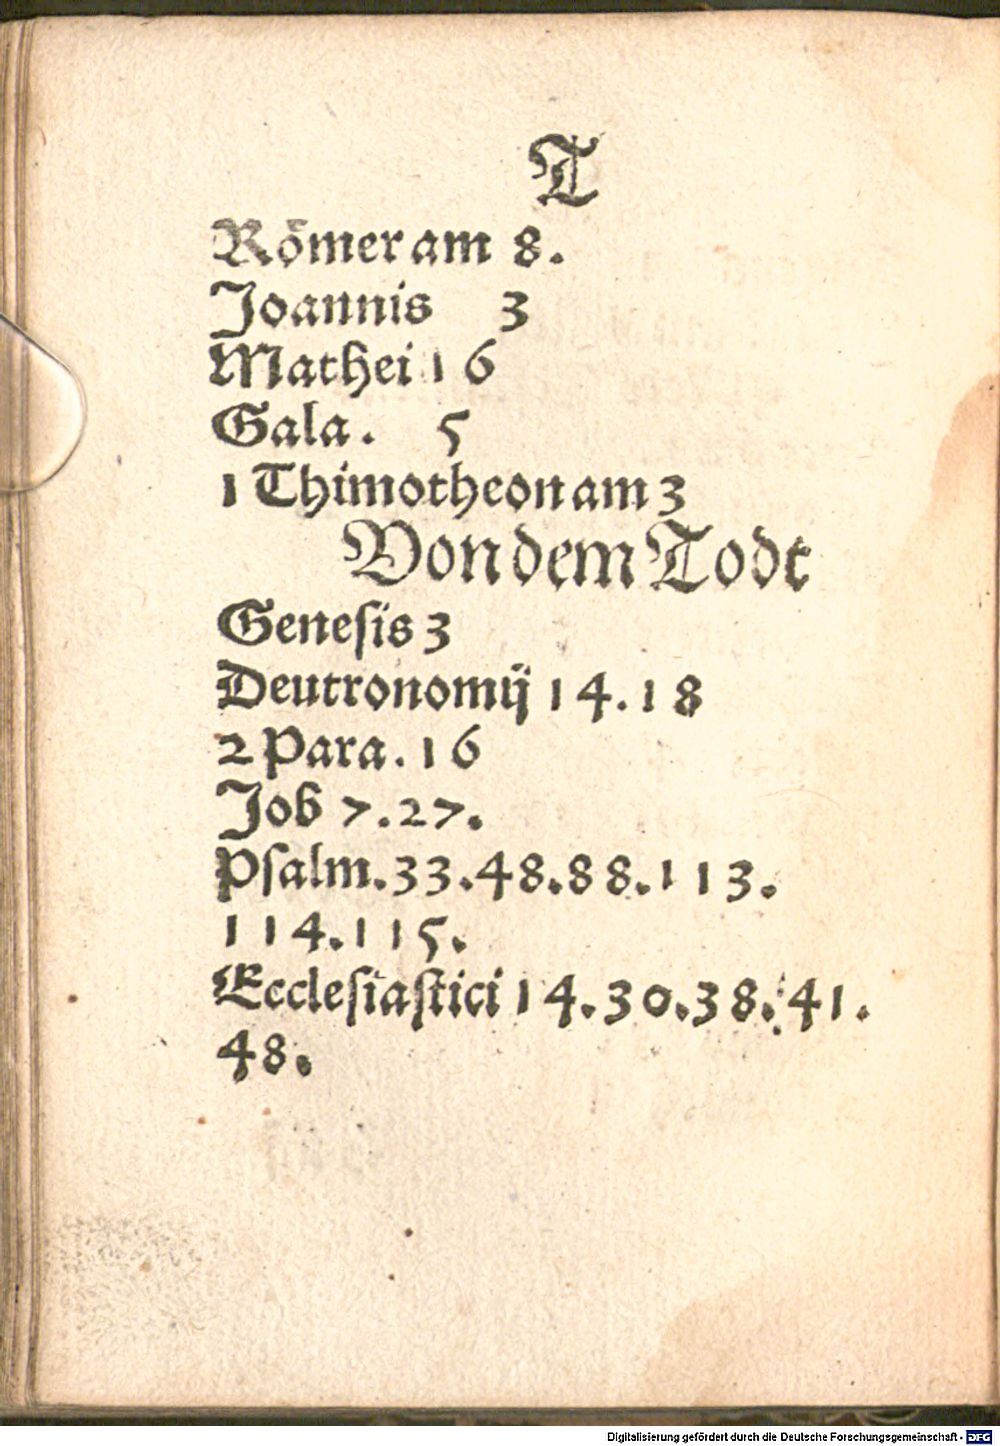 T
Römer am 8.
Joannis 3
Mathei 16
Gala. 5
1 Thimotheon am 3
Von dem Todt
Genesis 3
Deutronomij 14.18
2 Para. 16
Job 7.27.
Psalm.33.48.88.113.
114.115.
Ecclesiastici 14.30.38.41.
48.
Digitalisierung gefördert durch die Deutsche Forschungsgemeinschaft - DFG